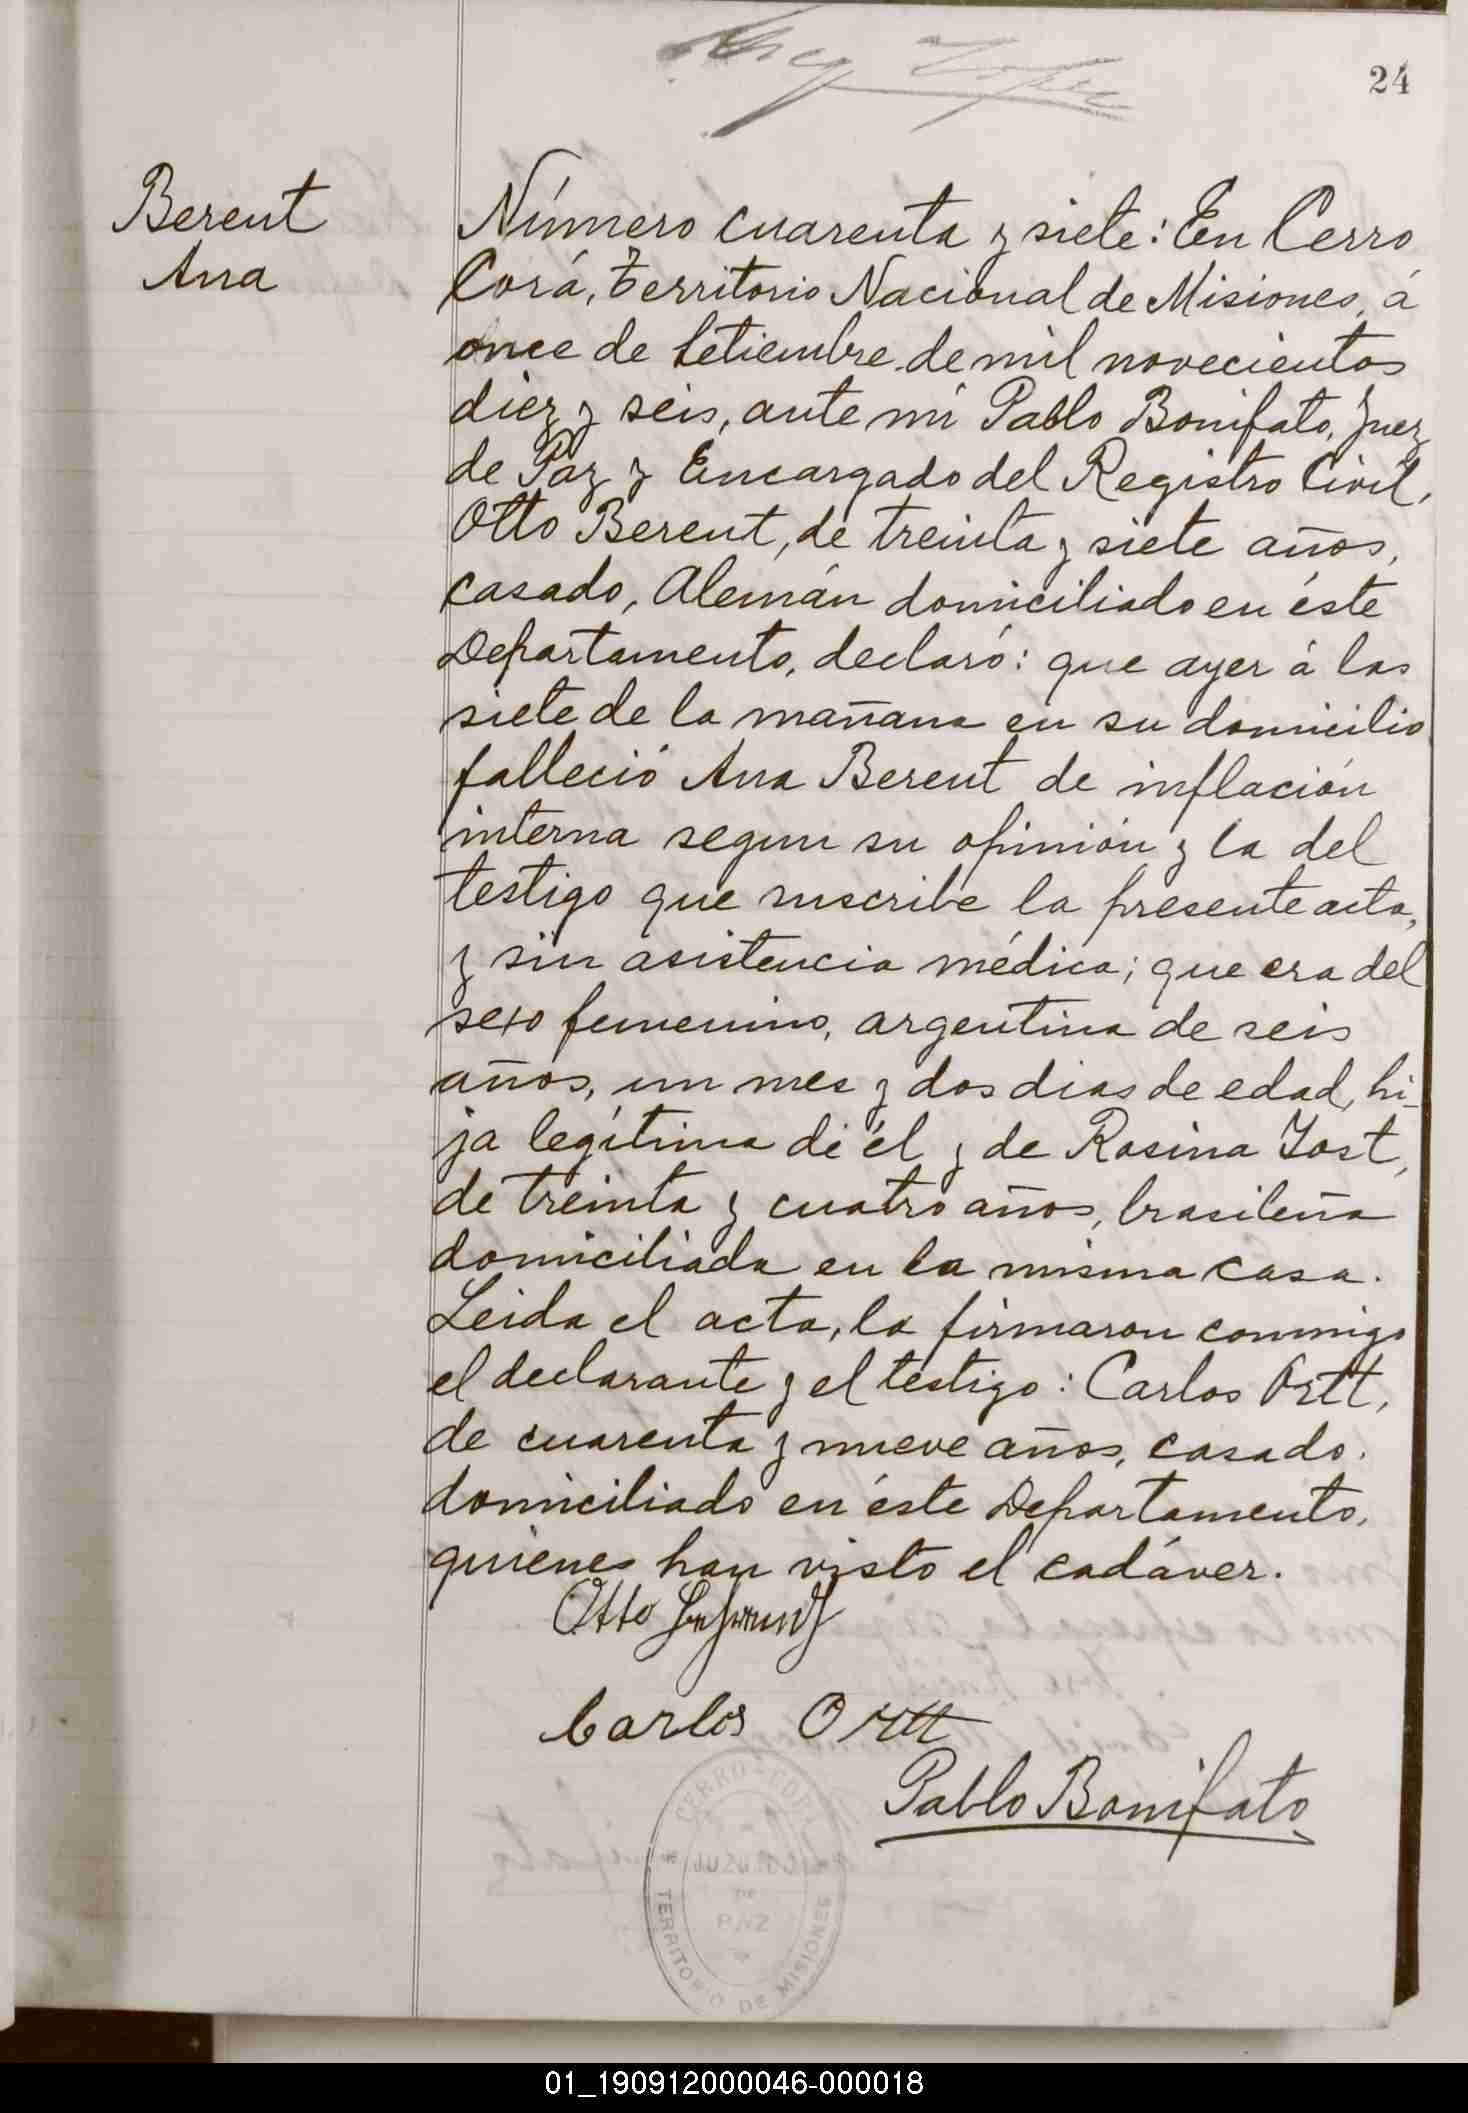 24
Berent
Ana
Número cuarenta y siete: En Cerro
Corá, Territorio Nacional de Misiones, á
once de Setiembre de mil novecientos
diez y seis, ante mi Pablo Bonifato, Juez
de Paz y Encargado del Registro Civil,
Otto Berent, de treinta y siete años,
casado, Alemán domiciliado en éste
Departamento, declaró: que ayer á las
siete de la mañana en su domicilio
falleció Ana Berent de inflación
interna segun su opinión y la del
testigo que suscribe la presente acta,
y sin asistencia médica; que era del
sexo femenino, argentina de seis
años, un mes y dos dias de edad, hi-
ja legítima de él y de Rosina Yost,
de treinta y cuatro años, brasileña
domiciliada en la misma casa.
Leida el acta, la firmaron conmigo
el declarante y el testigo: Carlos Ortt,
de cuarenta y nueve años, casado.
domiciliado en éste Departamento,
quienes han visto el cadáver.
Otto
Carlos Ortt
Pablo Bonifato
CERRO-CORÁ
JUZGADO
DE
PAZ
TERRITORIO DE MISIONES
01_190912000046-000018